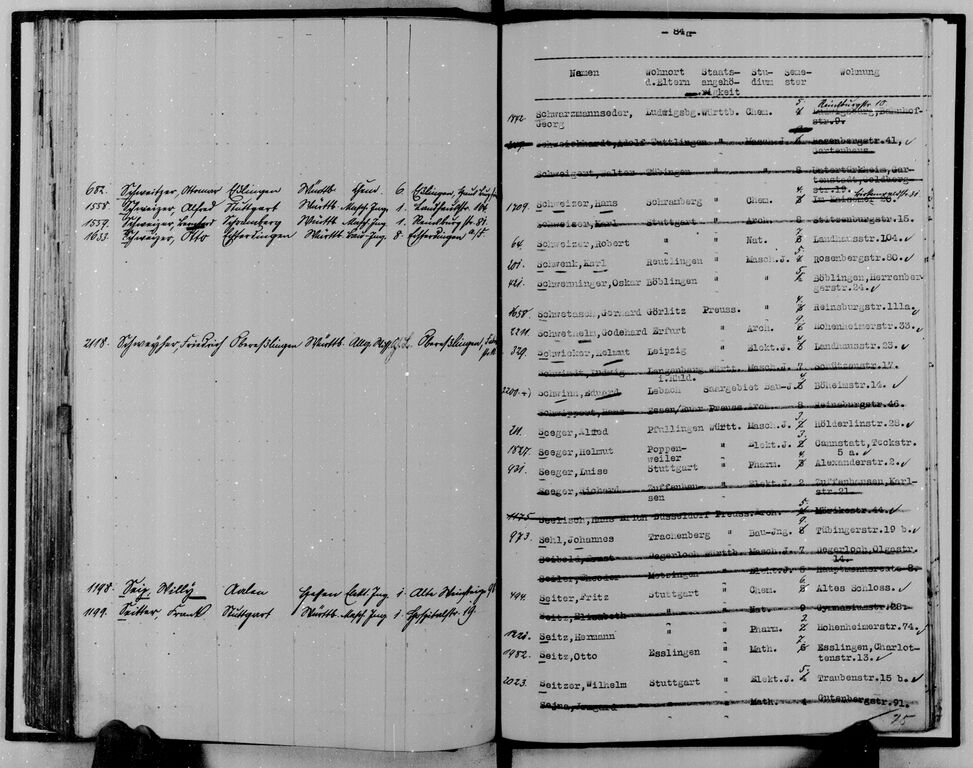 682. Schweitzer, Ottmar Eßlingen Württb. 6 Eßlingen,
1558. Schweizer, Alfred Stuttgart Württ. Masch. Ing. 1. Landhausstr.
1557. Schweizer, Schramberg Württ. Masch. Ing 1. Reinsburgstr. 51
1633. Schweizer, Otto Echterdingen Württb. Bau-Ing. 8. Echterdingen a/F.
2118. Schweyher, Friedrich Obereßlingen Württb. Obereßlingen,
1198. Seip, Willy Aalen Hessen Elekt. Ing 1
1199. Seitter, Frank Stuttgart Württb. Masch. Ing 1 Hospitalstr. 19
- 84a-
Namen Wohnort Staats- Stu- Seme- Wohnung
d.Eltern angehö- dium ster
rigkeit
Reinsburgstr 10.
1892. Schwarzmannseder, Ludwigsbg. Württb. Chem. 5. Ludwigsburg, Bahnhof-
Georg str.9.
Schweickhardt, Adolf Tuttlingen " Masch.J. Rosenbergstr.41,
Gartenhaus.
Schweigert, Walter Tübingen " " 8 Untertürkheim, Gar-
tenstadt,
str.19.
Birkenwaldstr. 31
1209. Schweizer, Hans Schramberg " Chem. 4. Im Kaiser
Schweizer, Karl Stuttgart " Arch. 8 Stitzenburgstr.15.
64. Schweizer, Robert " " Nat. 7 Landhausstr.104.
201. Schwenk, Karl Reutlingen " Masch.J. 5. Rosenbergstr.80.
421. Schwenninger, Oskar Böblingen " " 5. Böblingen, Herrenber-
gerstr.24.
1658. Schwetasch, Gerhard Görlitz Preuss. " 4. Reinsburgstr.111a.
2211. Schwethelm, Godehard Erfurt " Arch. 9. Hohenheimerstr.33.
329. Schwicker, Helmut Leipzig " Elekt.J. 4. Landhausstr.23.
Ludwig Langenberg Württ. Masch.J. 7 Schützenstr.17.
2200. +) Schwinn, Eduard Lebach Saargebiet Bau-J. 4 Böheimstr.14.
Schwippert, Hans Essen/Ruhr Preuss. Arch. 8 Reinsburgstr.46.
211. Seeger, Alfred Pfullingen Württ. Masch.J. 3. Hölderlinstr.28.
1827. Seeger, Helmut Poppen- " Elekt.J. 3. Cannstatt, Teckstr.
weiler 5 a.
431. Seeger, Luise Stuttgart " Pharm. 4 Alexanderstr.2.
Seeger, Richard Zuffenhau- " Elekt.J. 2 Zuffenhausen, Karl-
sen str.21.
1175 Seelisch, Hans Erich Düsseldorf Preuss. Arch. 5. Mörikestr.44.
973. Sehl, Johannes Trachenberg " Bau-Jng. 9. Tübingerstr.19 b.
Seibold, Ernst Degerloch Württb. Masch.J. 7 Degerloch, Olgastr.
14.
Seiler, Theodor Metzingen " Elekt.J. 5 8.
494. Seiter, Fritz Stuttgart " Chem. 6. Altes Schloss.
Seitz, Elisabeth " " Nat. 9 Gymnasiumstr.28.
1221. Seitz, Hermann " " Pharm. 2 Hohenheimerstr.74.
1982. Seitz, Otto Esslingen " Math. 7. Esslingen, Charlot-
tenstr.13.
2023. Seitzer, Wilhelm Stuttgart " Elekt.J. 5. Traubenstr.15 b.
Sejna, Irmgard " " Math. 4 Gutenbergstr.91.
75